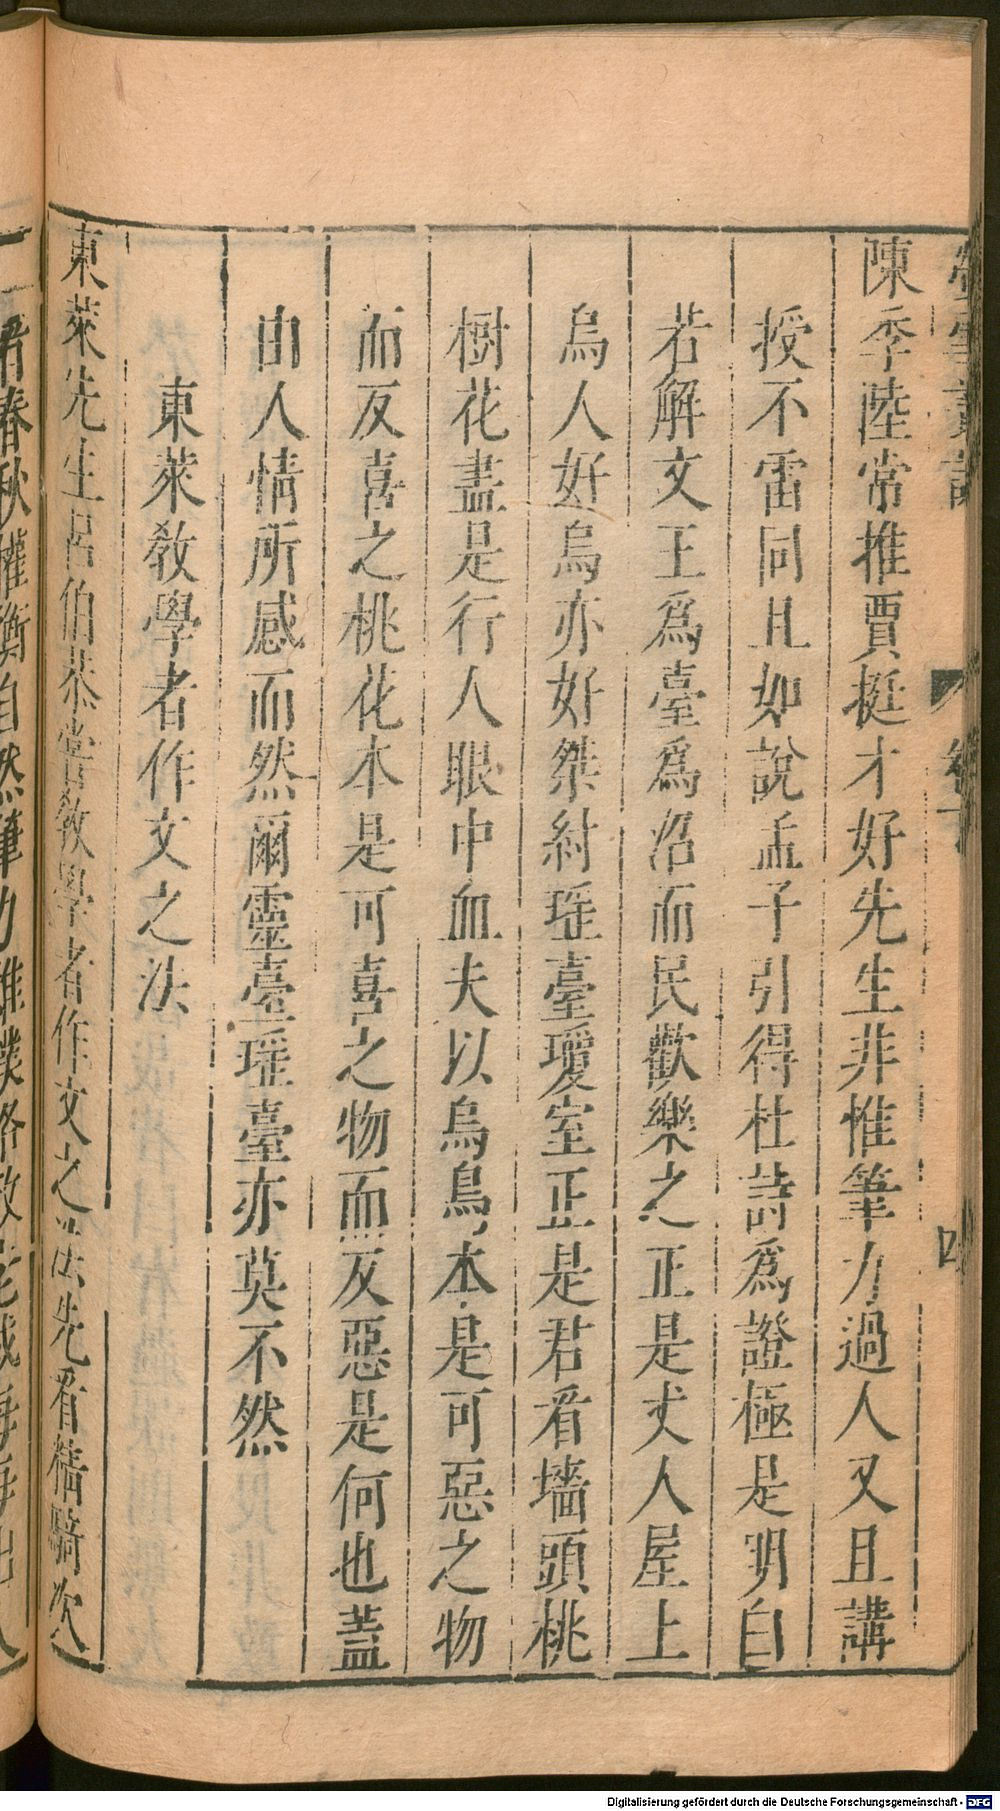 陳季陸常推賈挺才好先生非惟筆力過人又且講
授不雷同且如說孟子引得杜詩爲證極是明白
若解文王爲臺爲沼而民歡樂之正是丈人屋上
烏人好烏亦好桀紂瑶臺瓊室正是君看墻頭桃
樹花盡是行人眼中血夫以烏烏本是可惡之物
而反喜之桃花本是可喜之物而反惡是何也蓋
由人情所感而然爾靈臺瑶臺亦莫不然
東萊教學者作文之法
東萊先生呂伯恭嘗教學者作文之法先看精騎次
看春秋權衡自然筆力雄樸格致
四
Digitalisierung gefördert durch die Deutsche Forschungsgemeinschaft - DFG